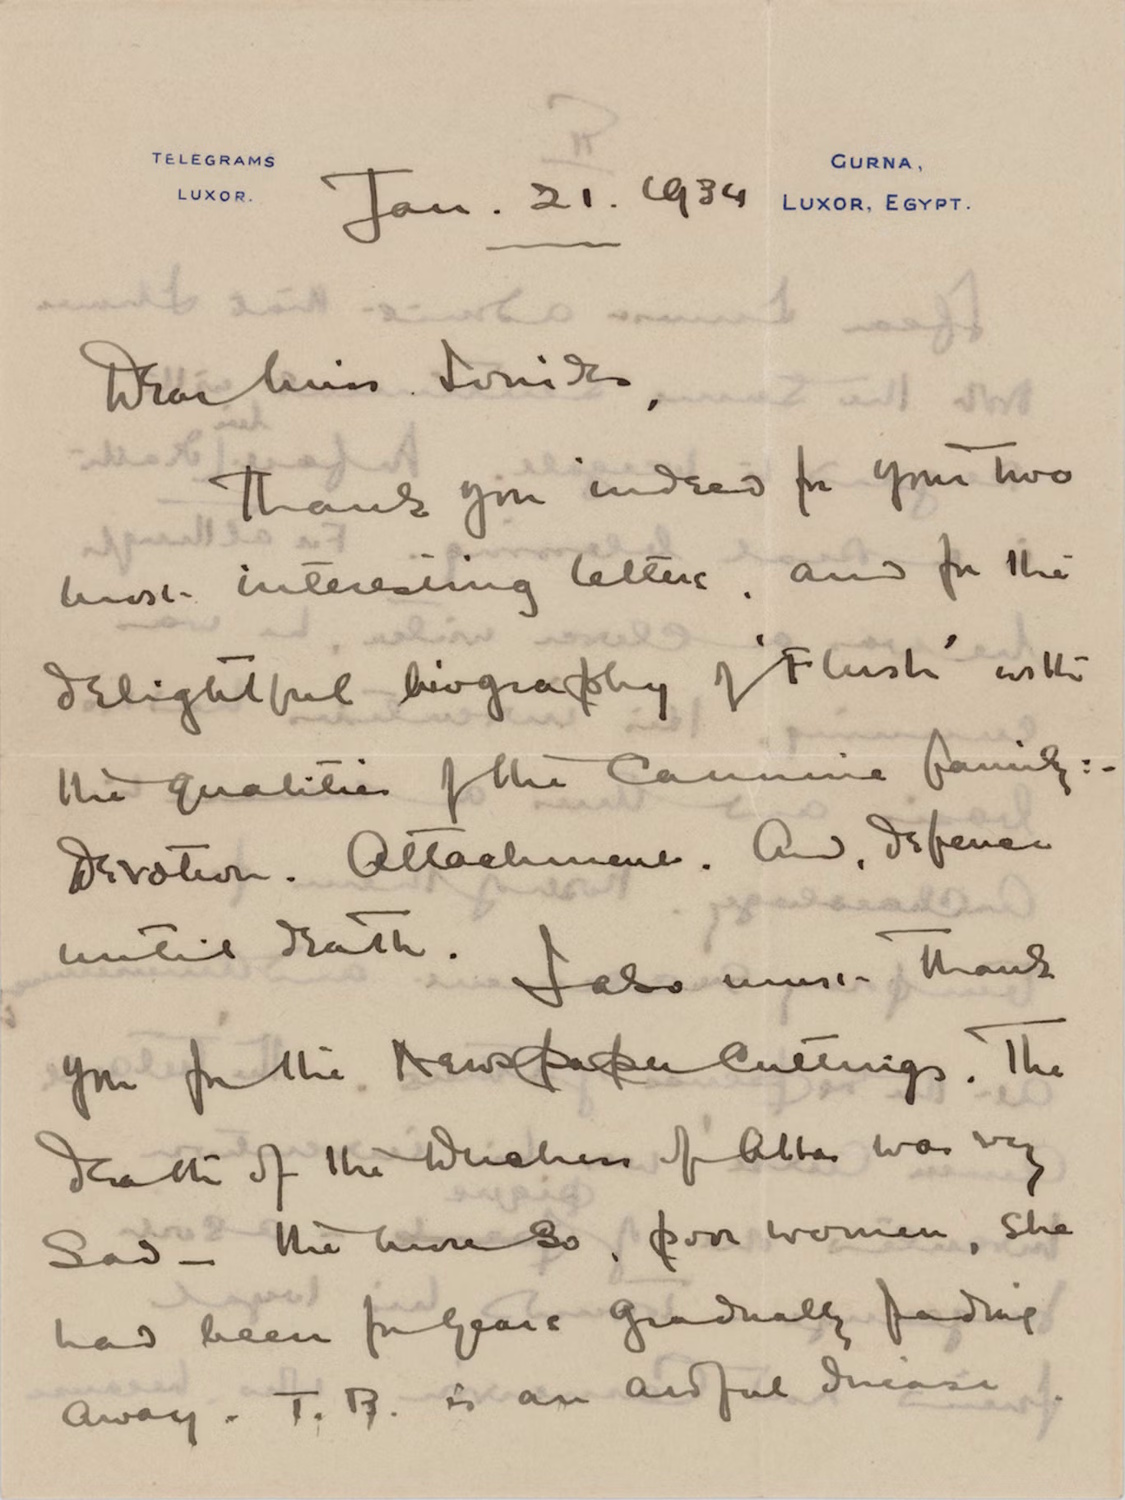 TELEGRAMS
LUXOR.
GURNA,
LUXOR, EGYPT.
Jan. 21. 1934
Dear Miss Ionides,
Thank you indeed for your two
most interesting letters, and for the
delightful biography of 'Flush' with
the qualities of the Cannine family:-
Devotion. Attachment. And, defence
until death. I also must thank
you for the Newspaper Cuttings. The
death of the Duchess of Alba was very
Sad - the more so, poor women, she
had been for years gradually fading
away. T.B. is an awful disease.